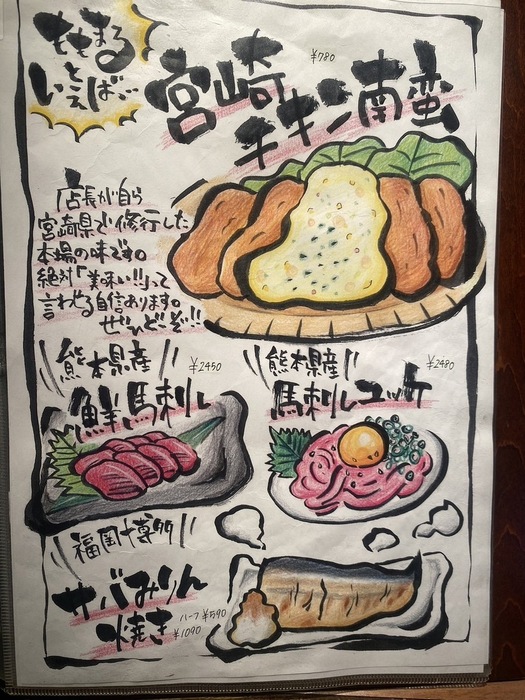 ももまる
といえば…
宮崎
チキン南蛮
¥780
店長が自ら
宮崎県で修行した
本場の味です。
絶対「美味い!!」って
言わせる自信あります。
ぜひどーぞ!!
熊本県産
¥2450
鮮馬刺し
熊本県産
¥2480
馬刺しユッケ
福岡博多
サバみりん
焼き
ハーフ ¥590
¥1090